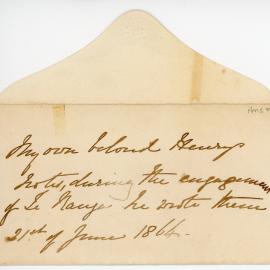 My own beloved Henrys
Notes, during the engagement
of Te Ranga he wrote them
21st of June 1864.